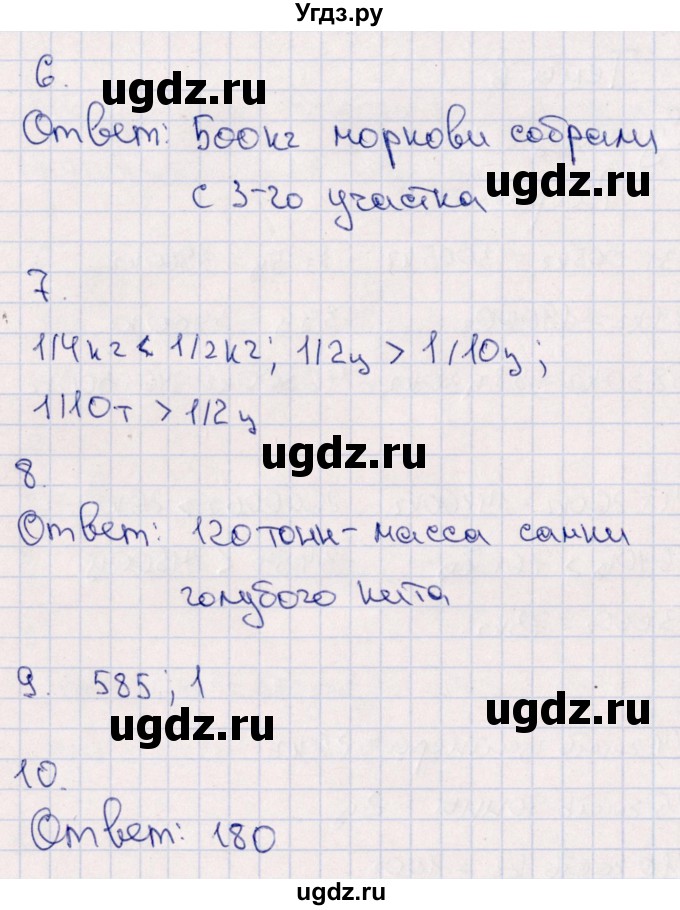 Угдз.ру
6.
ugdz.ru
Ответ: 500кг моркови собрали
ugdz.ru
с 3-го участка
7.
1/4кг < 1/2кг; 1/2ц > 1/10ц;
1/10т > 1/2ц
ugdz.ru
8.
Ответ: 120 тонн - масса самки
голубого кита
9. 585; 1
ugdz.ru
ugdz.ru
10.
Ответ: 180
ugdz.ru